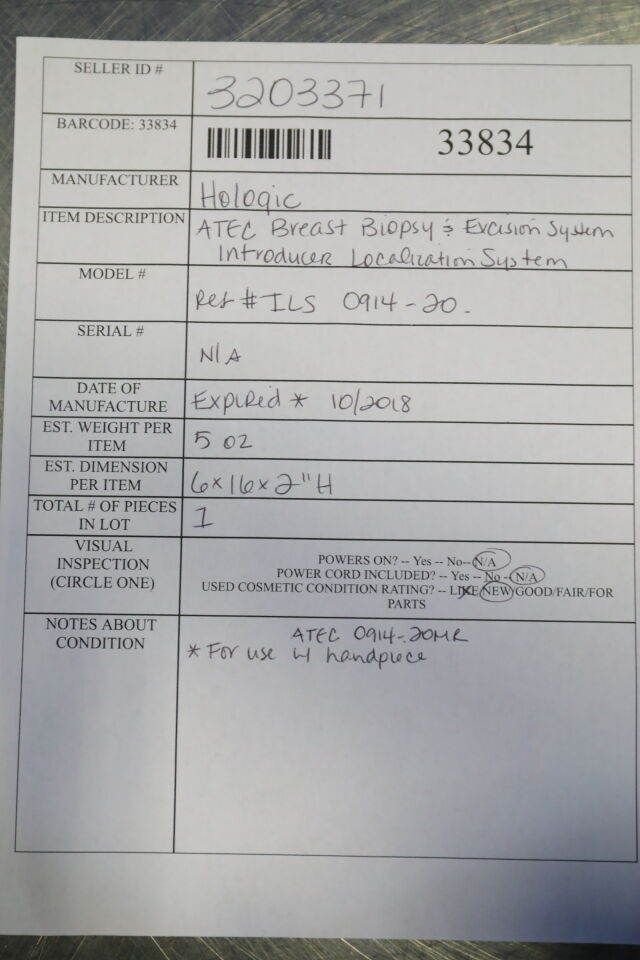 SELLER ID #
3203371
BARCODE: 33834
33834
MANUFACTURER
Hologic
ITEM DESCRIPTION
ATEC Breast Biopsy & Excision System
Introducer Localization System
MODEL #
Ref # ILS 0914-20.
SERIAL #
N/A
DATE OF
MANUFACTURE
Expired * 10/2018
EST. WEIGHT PER
ITEM
5 oz
EST. DIMENSION
PER ITEM
6x16x2"H
TOTAL # OF PIECES
IN LOT
1
VISUAL
INSPECTION
(CIRCLE ONE)
POWERS ON? -- Yes -- No--N/A
POWER CORD INCLUDED? -- Yes -- No --N/A
USED COSMETIC CONDITION RATING? -- LIKE NEW/GOOD/FAIR/FOR
PARTS
NOTES ABOUT
CONDITION
ATEC 0914-20MR
* For use w/ handpiece